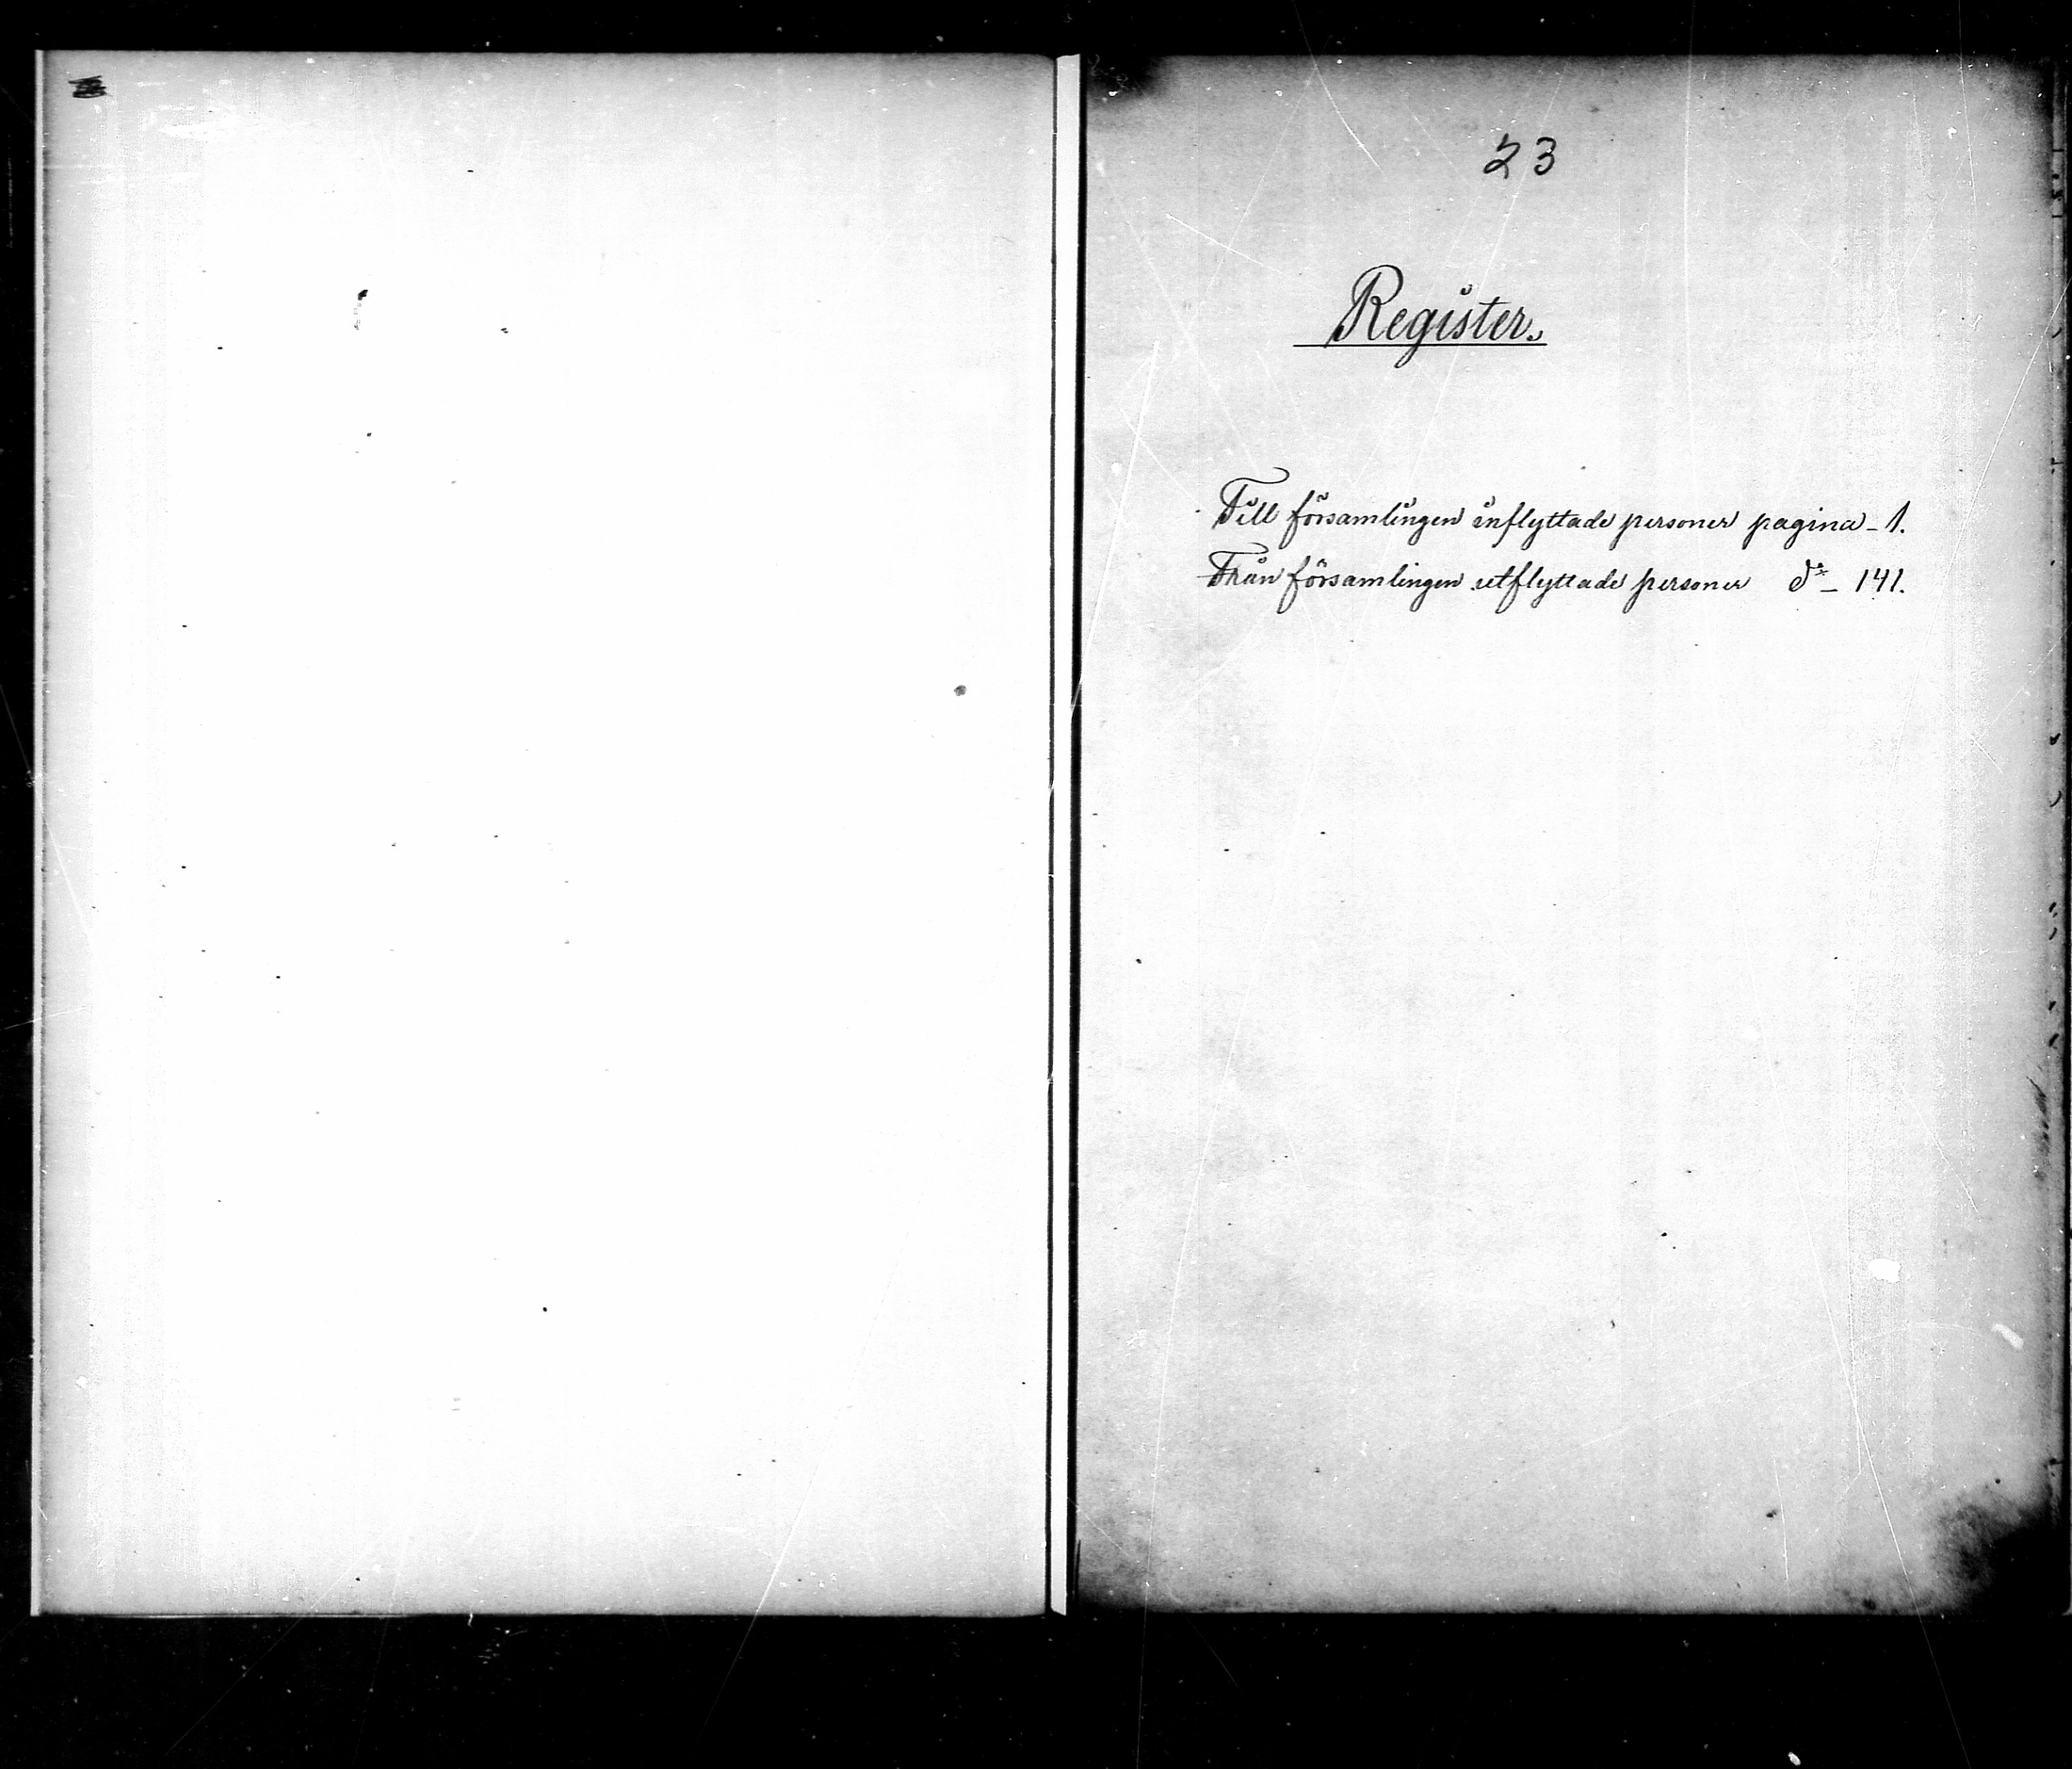 23
Register.
Till församlingen inflyttade personer pagina - 1.
Från församlingen utflyttade personer d:o - 141.